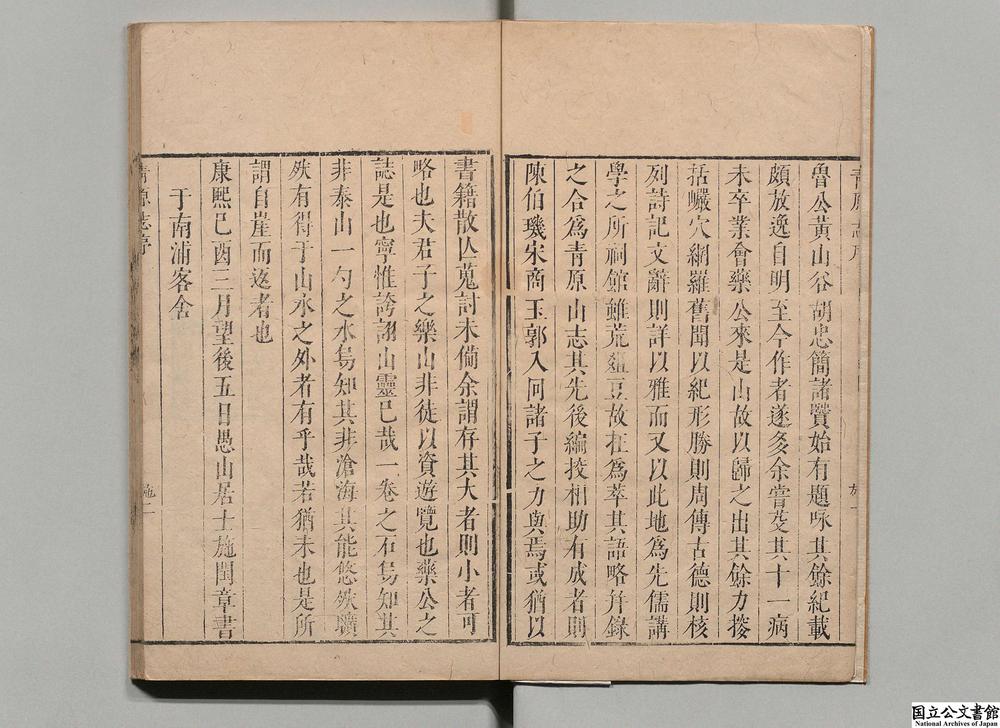 魯公黃山谷胡忠簡諸賢始有題咏其餘紀載
頗放逸自明至今作者遂多余嘗芟其十一病
未卒業會藥公來是山故以歸之出其餘力蒐
括巖穴網羅舊聞以紀形勝則周傳古德則核
列詩記文辭則詳以雅而又以此地爲先儒講
學之所祠館雖荒俎豆故在爲萃其語略幷錄
之合爲青原山志其先後編挍相助有成者則
陳伯璣宋商玉郭入何諸子之力與焉或猶以
書籍散亾蒐討未備余謂存其大者則小者可
略也夫君子之樂山非徒以資遊覽也藥公之
誌是也寧惟誇詡山靈已哉一卷之石烏知其
非泰山一勺之水烏知其非滄海其能悠然曠
然有得于山水之外者有乎哉若猶未也是所
謂自崖而返者也
康熙己酉三月望後五日愚山居士施閏章書
于南浦客舍
青原志序
施二
国立公文書館
National Archives of Japan